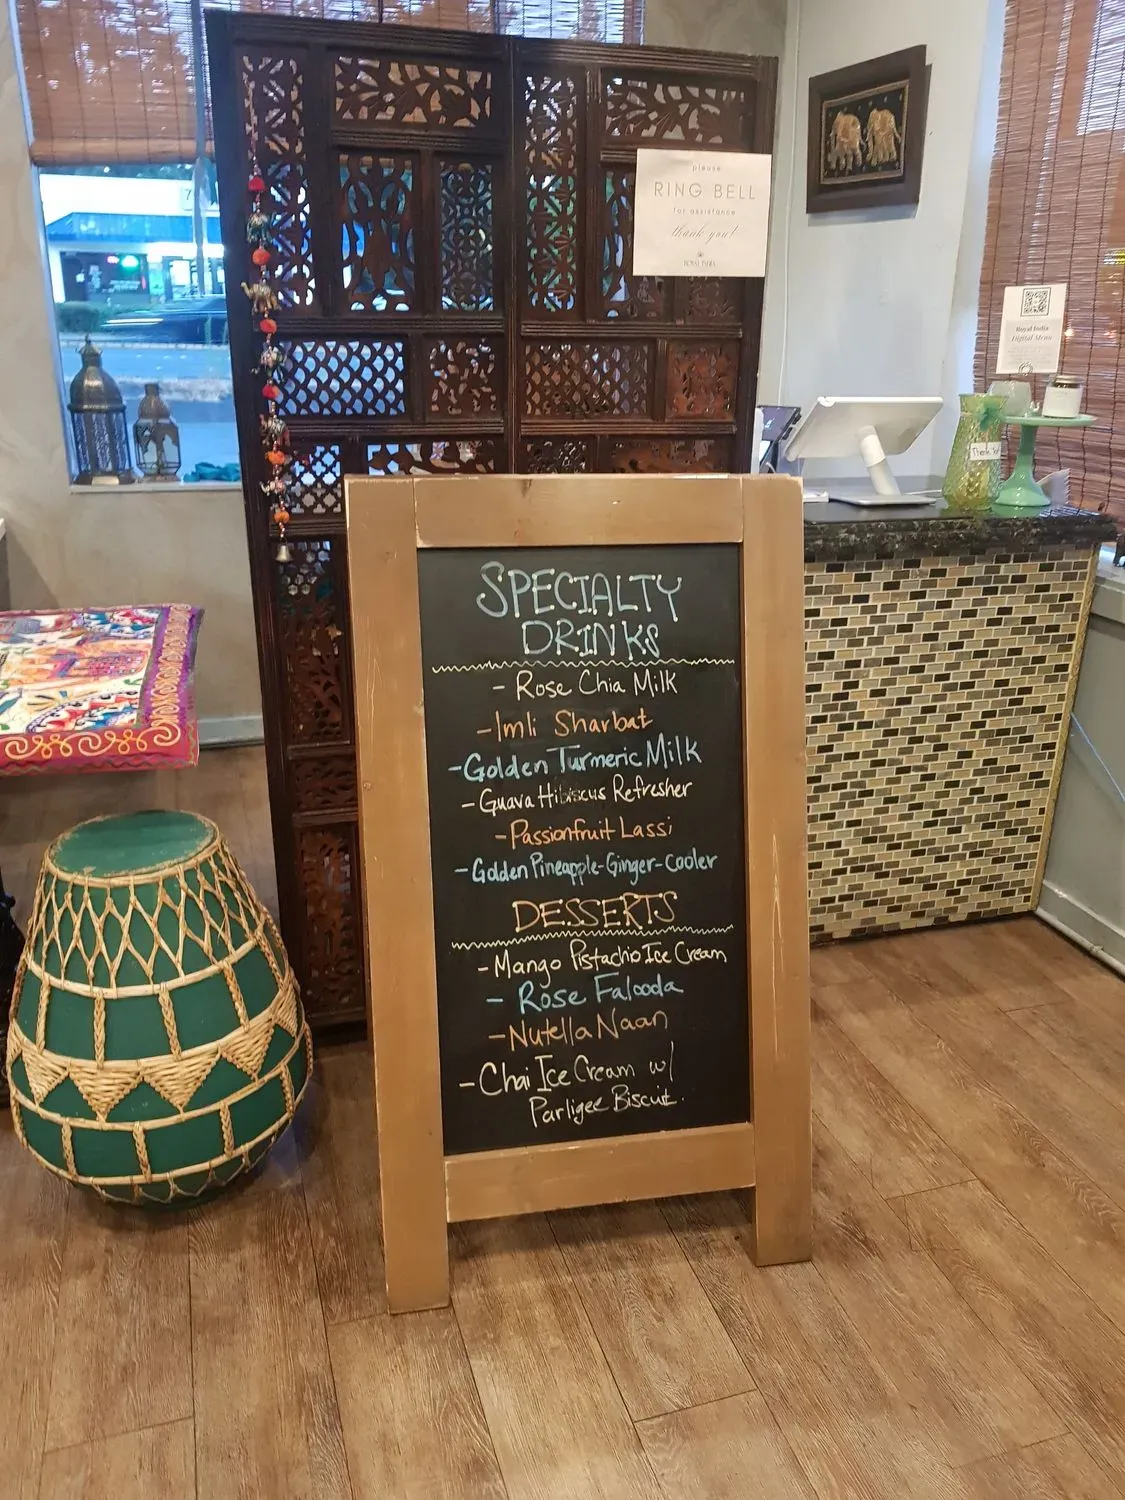 please
RING BELL
for assistance
thank you!
ROYAL INDIA
Royal India
Digital Menu
Thank You
SPECIALTY
DRINKS
- Rose Chia Milk
- Imli Sharbat
- Golden Turmeric Milk
- Guava Hibiscus Refresher
- Passionfruit Lassi
- Golden Pineapple-Ginger-Cooler
DESSERTS
- Mango Pistachio Ice Cream
- Rose Falooda
- Nutella Naan
- Chai Ice Cream w/
Parligee Biscuit.